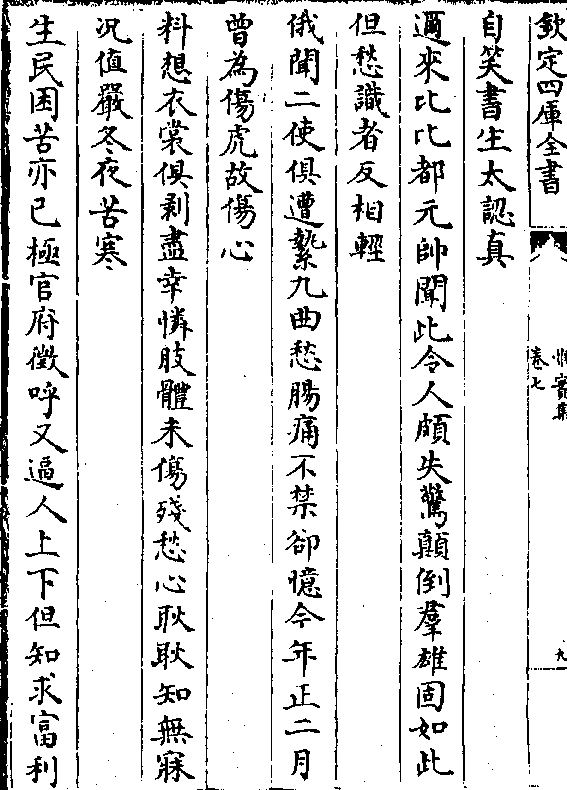 欽定四庫全書
卷七
九
自笑書生太認真
邇來比比都元帥聞此令人頗失驚顛倒羣雄固如此
但愁識者反相輕
俄聞二使俱遭縶九曲愁腸痛不禁卻憶今年正二月
曾為傷虎故傷心
料想衣裳俱剥盡幸憐肢體未傷殘愁心耿耿知無寐
况值嚴冬夜苦寒
生民困苦亦已極官府徴呼又逼人上下但知求富利